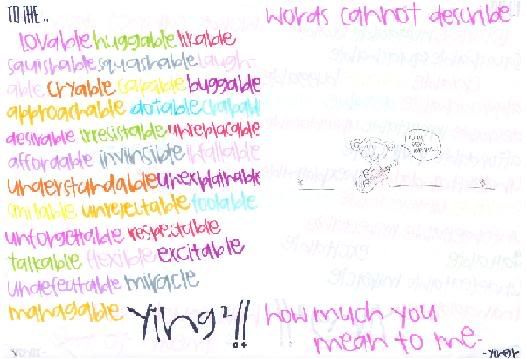 TO THE..
lovable huggable likable
squishable squashable laugh
able cryable capable buggable
approachable datable chatable
desirable irresistable unreplacable
affordable invinsible infallable
understandable unexplainable
smilable unrejectable
unforgettable respectable
talkable flexible excitable
undefeatable miracle
managable Ying²!!
words cannot describe
how much you
mean to me.